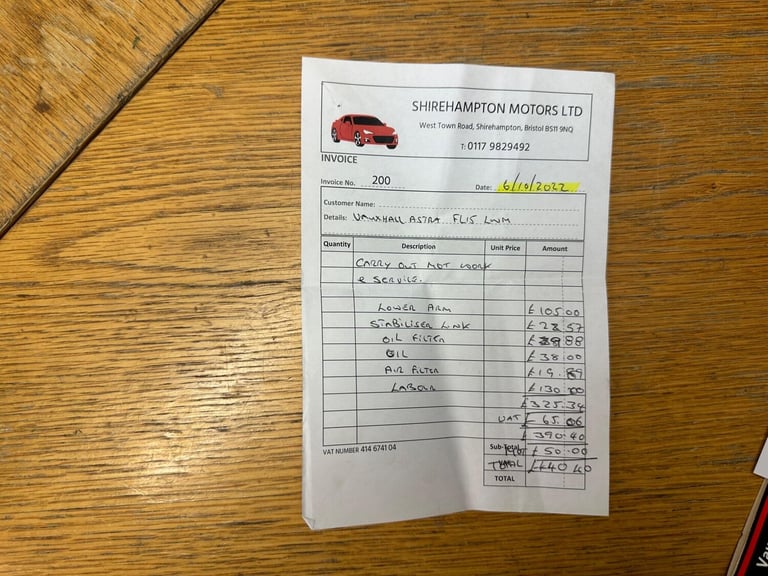 SHIREHAMPTON MOTORS LTD
West Town Road, Shirehampton, Bristol BS11 9NQ
T: 0117 9829492
INVOICE
Invoice No. 200 Date: 6/10/2022
Customer Name:
Details: VAUXHALL ASTRA FL15 LWM
Quantity Description Unit Price Amount
CARRY OUT MOT WORK
& SERVICE.
LOWER ARM £105.00
STABILISER LINK £ 57
OIL FILTER £ 88
OIL £38.00
AIR FILTER £19.89
LABOUR £130.00
£325.34
VAT £65.06
£390.40
Sub-Total MOT £50.00
TOTAL £440.40
TOTAL
VAT NUMBER 414 6741 04